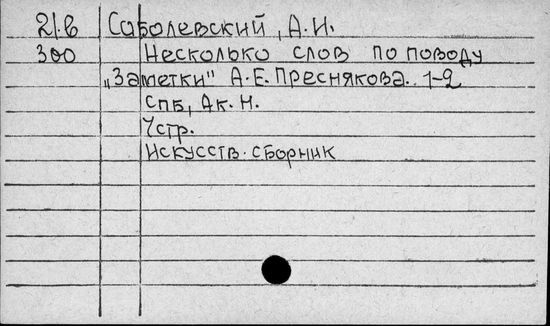 21.в Соболевский, А.И.
300 Несколько слов по поводу
„Заметки" А.Е. Преснякова. 1-2
СПБ, Ак. Н.
7стр.
Искусств. сборник